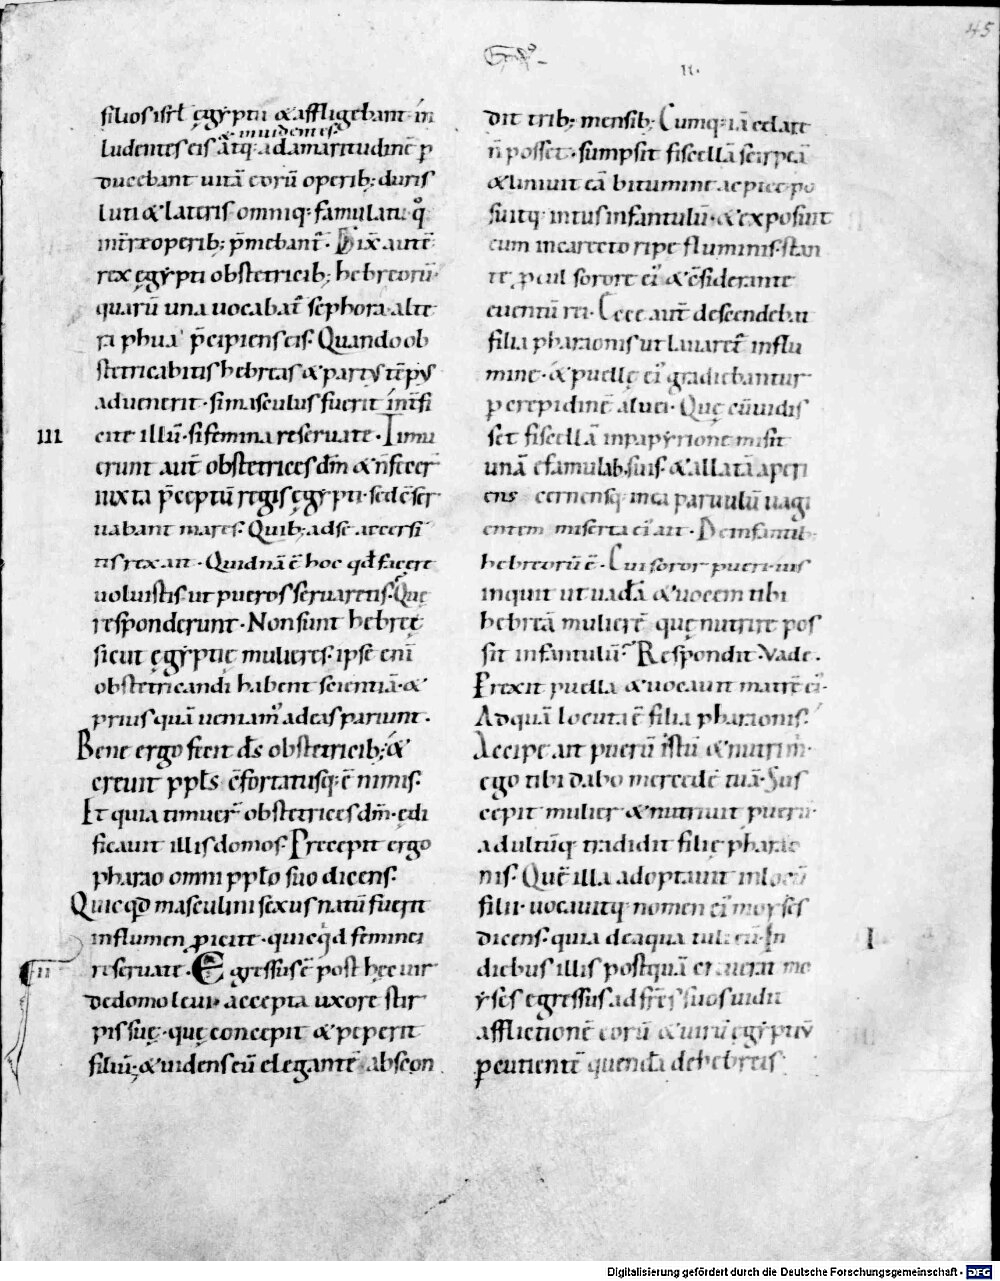 45
Exod̅
II.
filios isrł ęgẏptii & affligebant in
& inuidentes
ludentes eis atq; ad amaritudinē ꝑ
ducebant uitā eorū operib; duris
luti & lateris omniq; famulatu qͦ
in tr̄re operib; p̄mebant̄. Dix̄ autē
rex ęgẏpti obstetricib; hebreorū
quarū una uocabat̄ sephora alte
ra phua p̄cipiens eis. Quando ob
stetricabitis hebreas & part; tēp;
aduenerit. si masculus fuerit int̄fi
III cite illū. si femina reseruate. Timu
erunt aut̄ obstetrices dm̄ & n̄ fecer̄
iuxta p̄ceptū regis ęgẏpti. sed c̄ser
uabant mares. Quib; ad se accersi
tis rex ait. Quidnā ē hoc qd̄ facere
uoluistis. ut pueros seruaretis. Quę
responderunt. Non sunt hebreę
sicut ęgẏptię mulieres. ipse eni̅
obstetricandi habent scientiā. &
prius quā ueniam' ad eas pariunt.
Bene ergo fecit ds̄ obstetricib; &
creuit ppls̄ c̄fortatusq; ē nimis.
Et quia timuer̄ obstetrices dm̄. ędi
ficauit illis domos. Precepit ergo
pharao omni ppło suo dicens.
Quicqd̄ masculini sexus natū fuerit
in flumen ꝓicite. quicqd feminei
II reseruate. Egressus ē post hęc uir
de domo leui. accepta uxore stir
pis suę. quę concepit & peperit
filiū. & uidens eū elegantē abscon
dit trib; mensib; Cumq; iā celare
n̄ posset. sumpsit fiscellā scirpeā
& liniuit eā bitumine ac pice. po
suitq; intus infantulū. & exposuit
eum in carecto ripe fluminis. stan
te ꝓcul sorore ei' & c̄siderante
euentū rei. Ecce aut̄ descendebat
filia pharaonis ut lauaret̄ in flu
mine. & puellę ei' gradiebantur
per crepidinē aluei. Quę cū uidis
set fiscellā in papẏrione misit
unā e famulab; suis. & allatā aperi
ens cernensq; in ea paruulū uagi
entem miserta ei' ait. De infantib;
hebreorū ē. Cui soror pueri. uis
inquit ut uadā & uocem tibi
hebreā mulierē quę nutrire pos
sit infantulū. Respondit. Vade.
Prexit puella & uocauit matrē ei'.
Ad quā locuta ē filia pharaonis.
Accipe ait puerū istū & nutri m̄.
ego tibi dabo mercedē tuā. Sus
cepit mulier & nutriuit puerū.
adultūq; tradidit filię pharao
nis. Quē illa adoptauit in locū
filii. uocauitq; nomen ei' moẏses
dicens. quia de aqua tuli eū. In
I diebus illis postquā creuerat mo
ẏses egressus ad fr̄es suos uidit
afflictionē eorū & uirū ęgẏptiū
percutientē quendā de hebreis
Digitalisierung gefördert durch die Deutsche Forschungsgemeinschaft - DFG